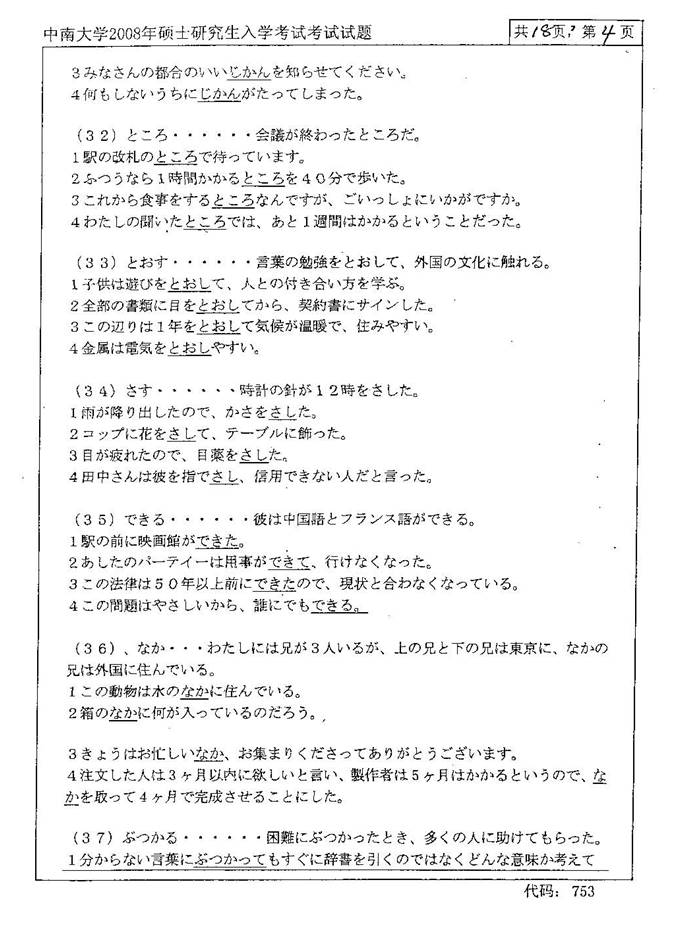 中南大学2008年硕士研究生入学考试考试试题
共18页，第4页
3みなさんの都合のいいじかんを知らせてください。
4何もしないうちにじかんがたってしまった。
（32）ところ・・・・・・会議が終わったところだ。
1駅の改札のところで待っています。
2ふつうなら1時間かかるところを40分で歩いた。
3これから食事をするところなんですが、ごいっしょにいかがですか。
4わたしの聞いたところでは、あと1週間はかかるということだった。
（33）とおす・・・・・・言葉の勉強をとおして、外国の文化に触れる。
1子供は遊びをとおして、人との付き合い方を学ぶ。
2全部の書類に目をとおしてから、契約書にサインした。
3この辺りは1年をとおして気候が温暖で、住みやすい。
4金属は電気をとおしやすい。
（34）さす・・・・・・時計の針が12時をさした。
1雨が降り出したので、かさをさした。
2コップに花をさして、テーブルに飾った。
3目が疲れたので、目薬をさした。
4田中さんは彼を指でさし、信用できない人だと言った。
（35）できる・・・・・・彼は中国語とフランス語ができる。
1駅の前に映画館ができた。
2あしたのパーテイーは用事ができて、行けなくなった。
3この法律は50年以上前にできたので、現状と合わなくなっている。
4この問題はやさしいから、誰にでもできる。
（36）、なか・・・わたしには兄が3人いるが、上の兄と下の兄は東京に、なかの
兄は外国に住んでいる。
1この動物は水のなかに住んでいる。
2箱のなかに何が入っているのだろう。
3きょうはお忙しいなか、お集まりくださってありがとうございます。
4注文した人は3ヶ月以内に欲しいと言い、製作者は5ヶ月はかかるというので、な
かを取って4ヶ月で完成させることにした。
（37）ぶつかる・・・・・・困難にぶつかったとき、多くの人に助けてもらった。
1分からない言葉にぶつかってもすぐに辞書を引くのではなくどんな意味か考えて
代码：753